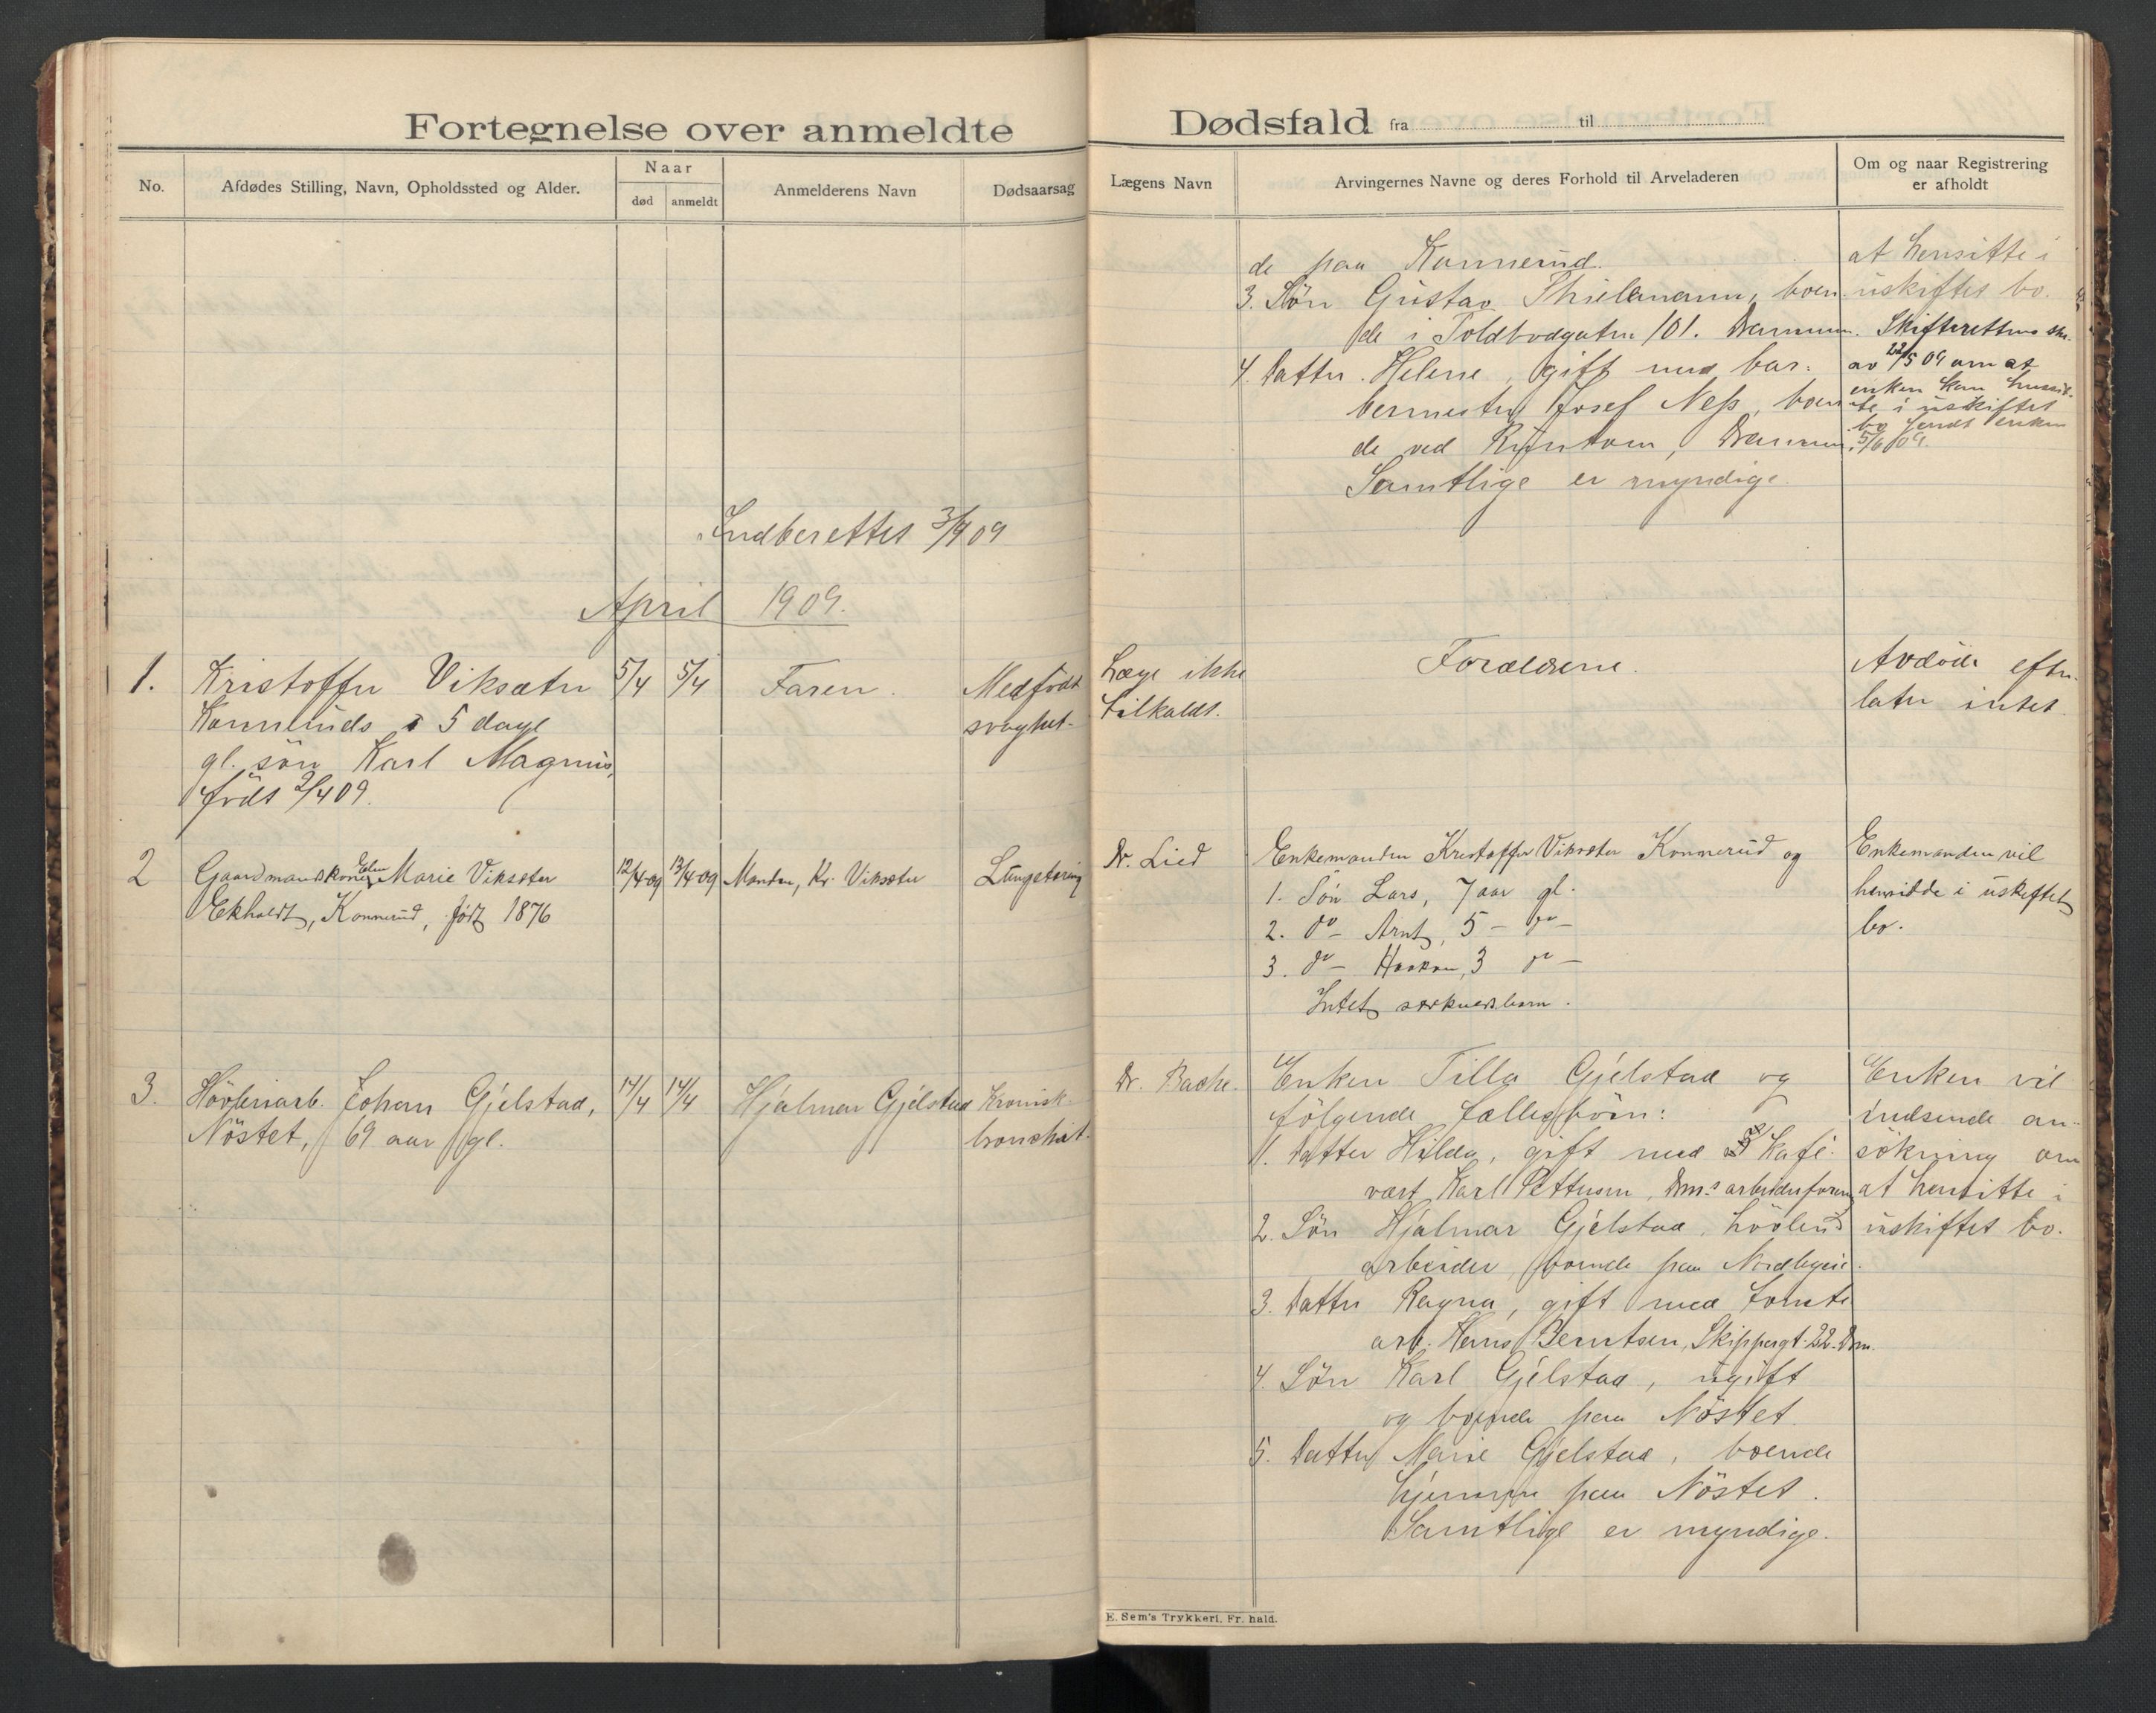 Fortegnelse over anmeldte
Dødsfald fra til
No.
Afdødes Stilling, Navn, Opholdssted og Alder.
Naar
død
anmeldt
Anmelderens Navn
Dødsaarsag
Lægens Navn
Arvingernes Navne og deres Forhold til Arveladeren
Om og naar Registrering
er afholdt
de paa Konnerud.
3. Søn Gustav Thielemann, boen
de i Toldbodgaten 101. Drammen.
4. Datter Helene, gift med bar-
bermester Josef Ness, boen
de ved, Drammen.
Samtlige er myndige.
at hensitte i
uskiftet bo.
Skifterettens skr.
av 22/5 09 om at
enken kan hensit-
te i uskiftet
bo sendt enken
5/6 09.
Indberettet 3/4 09
April 1909.
1.
Kristoffer Viksæter
Konneruds 5 dage
gl. søn Karl Magnus,
født 2/4 09.
5/4
5/4
Faren.
Medfødt
svaghet.
Læge ikke
tilkaldt.
Forældrene.
Avdøde efter-
later intet
2
Gaardmandskone Elen Marie Viksæter
Ekholdt, Konnerud, født 1876
12/4 09
13/4 09
Manden, Kr. Viksæter
Lungetæring
Dr. Lied
Enkemanden Kristoffer Viksæter Konnerud og
1. Søn Lars, 7 aar gl.
2. do - Arnt, 5 - do -
3. do - Haakon, 3 do -
Intet særkuldsbarn.
Enkemanden vil
hensidde i uskiftet
bo.
3.
Høvleriarb. Johan Gjelstad,
Nøstet, 69 aar gl.
14/4
14/4
Hjalmar Gjelstad
Kronisk
bronchit.
Dr. Bache.
Enken Tilla Gjelstad og
følgende fællesbørn:
1. Datter Hilda, gift med Kafé-
vært Karl Pettersen, Drm.s arbeiderforen.
2. Søn Hjalmar Gjelstad, høvleri
arbeider, boende paa Nordbyeie.
3. Datter Ragna, gift med tomte
arb. Hans Berntsen, Skippergt. 22. Drm.
4. Søn Karl Gjelstad, ugift
og boende paa Nøstet.
5. Datter Marie Gjelstad, boende
hjemme paa Nøstet.
Samtlige er myndige.
Enken vil
indsende an-
søkning om
at hensitte i
uskiftet bo.
E. Sem's Trykkeri, Fr. hald.